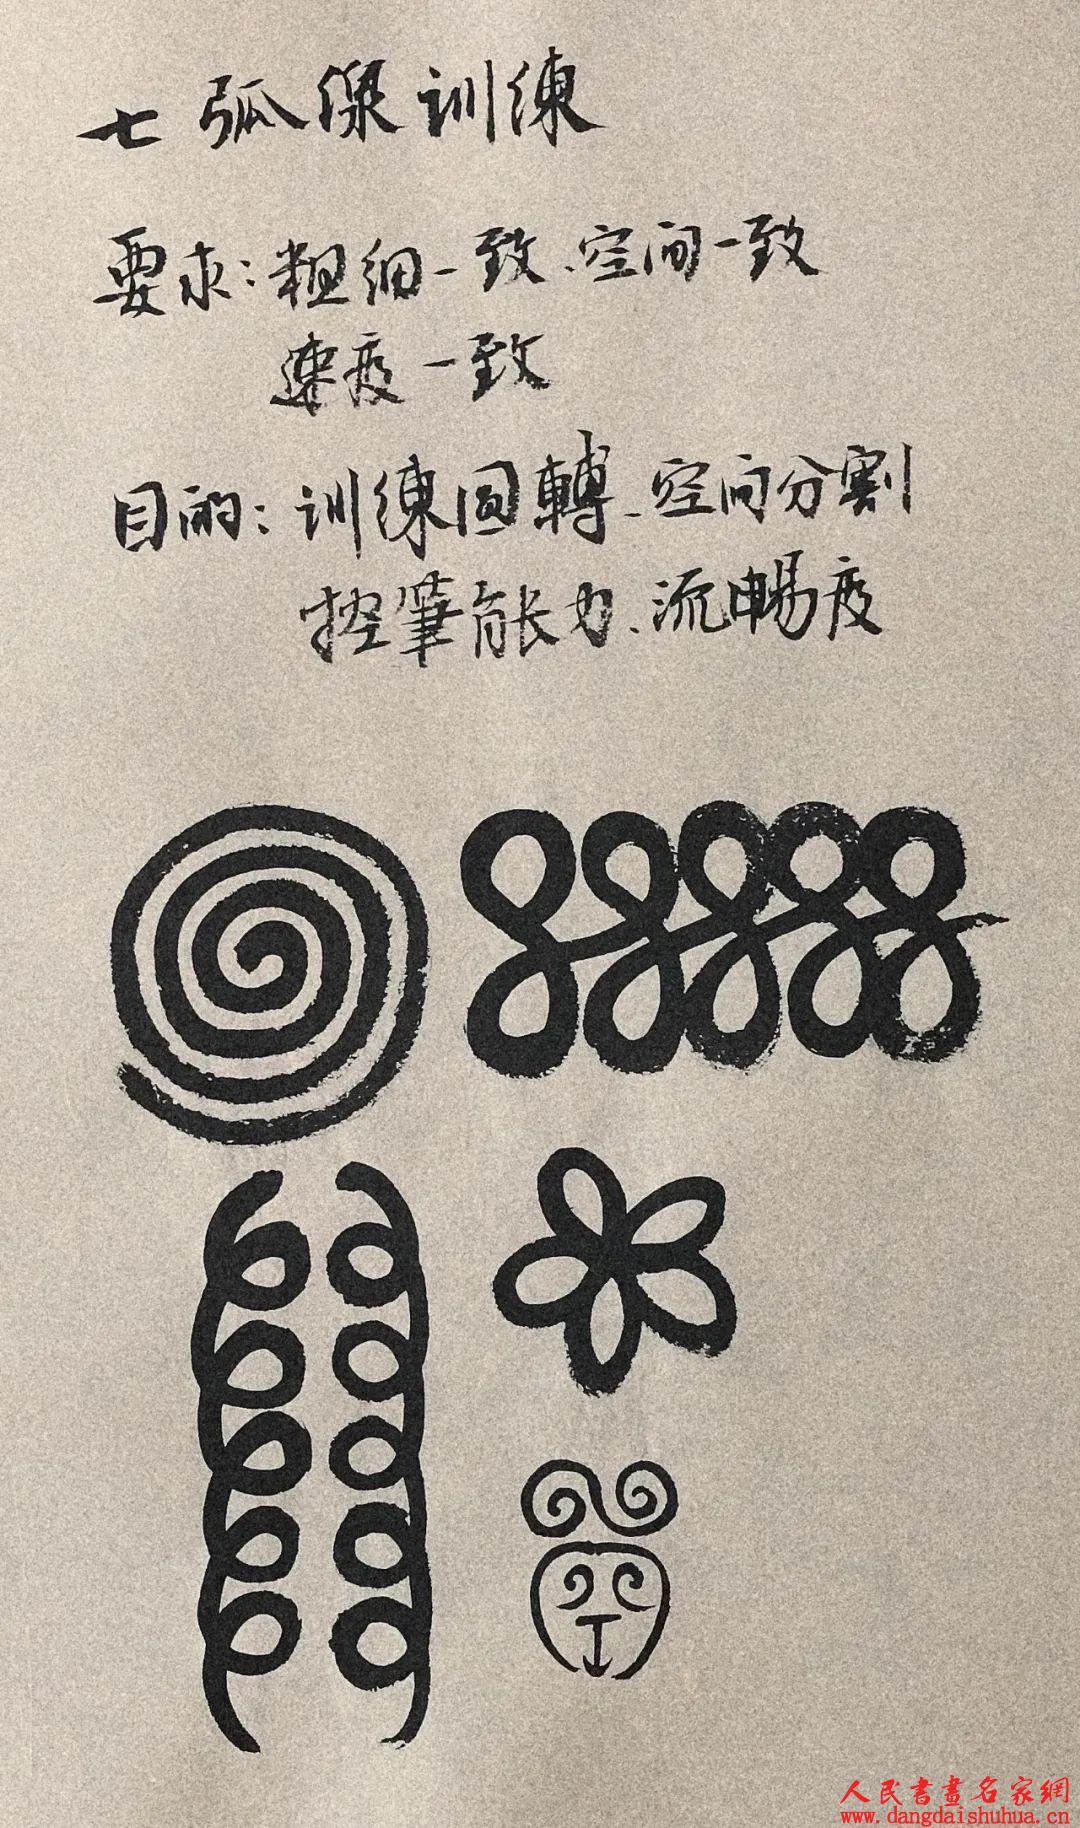 七 弧線训練
要求：粗细一致、空间一致
速度一致
目的：训練圓轉、空间分割
控筆能力、流暢度
人民書畫名家網
www.dangdaishuhua.cn